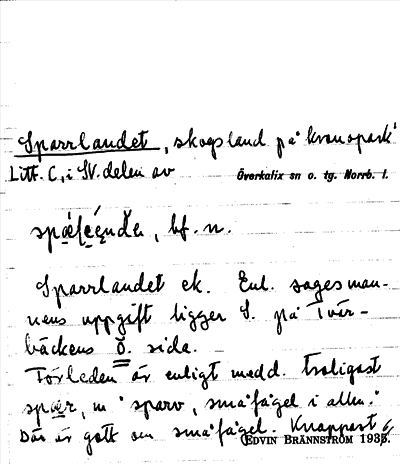 Sparrlandet, skogsland på kronopark
Litt. C, i SV. delen av Överkalix sn o. tg. Norrb. l.
bf. n.
Sparrlandet ek. Enl. sagesman-
nens uppgift ligger S. på Tvär-
bäckens Ö. sida.
Förleden är enligt medd. troligast
spær, m "sparv, småfågel i allm."
Där är gott om småfågel. Knappast
EDVIN BRÄNNSTRÖM 1935.